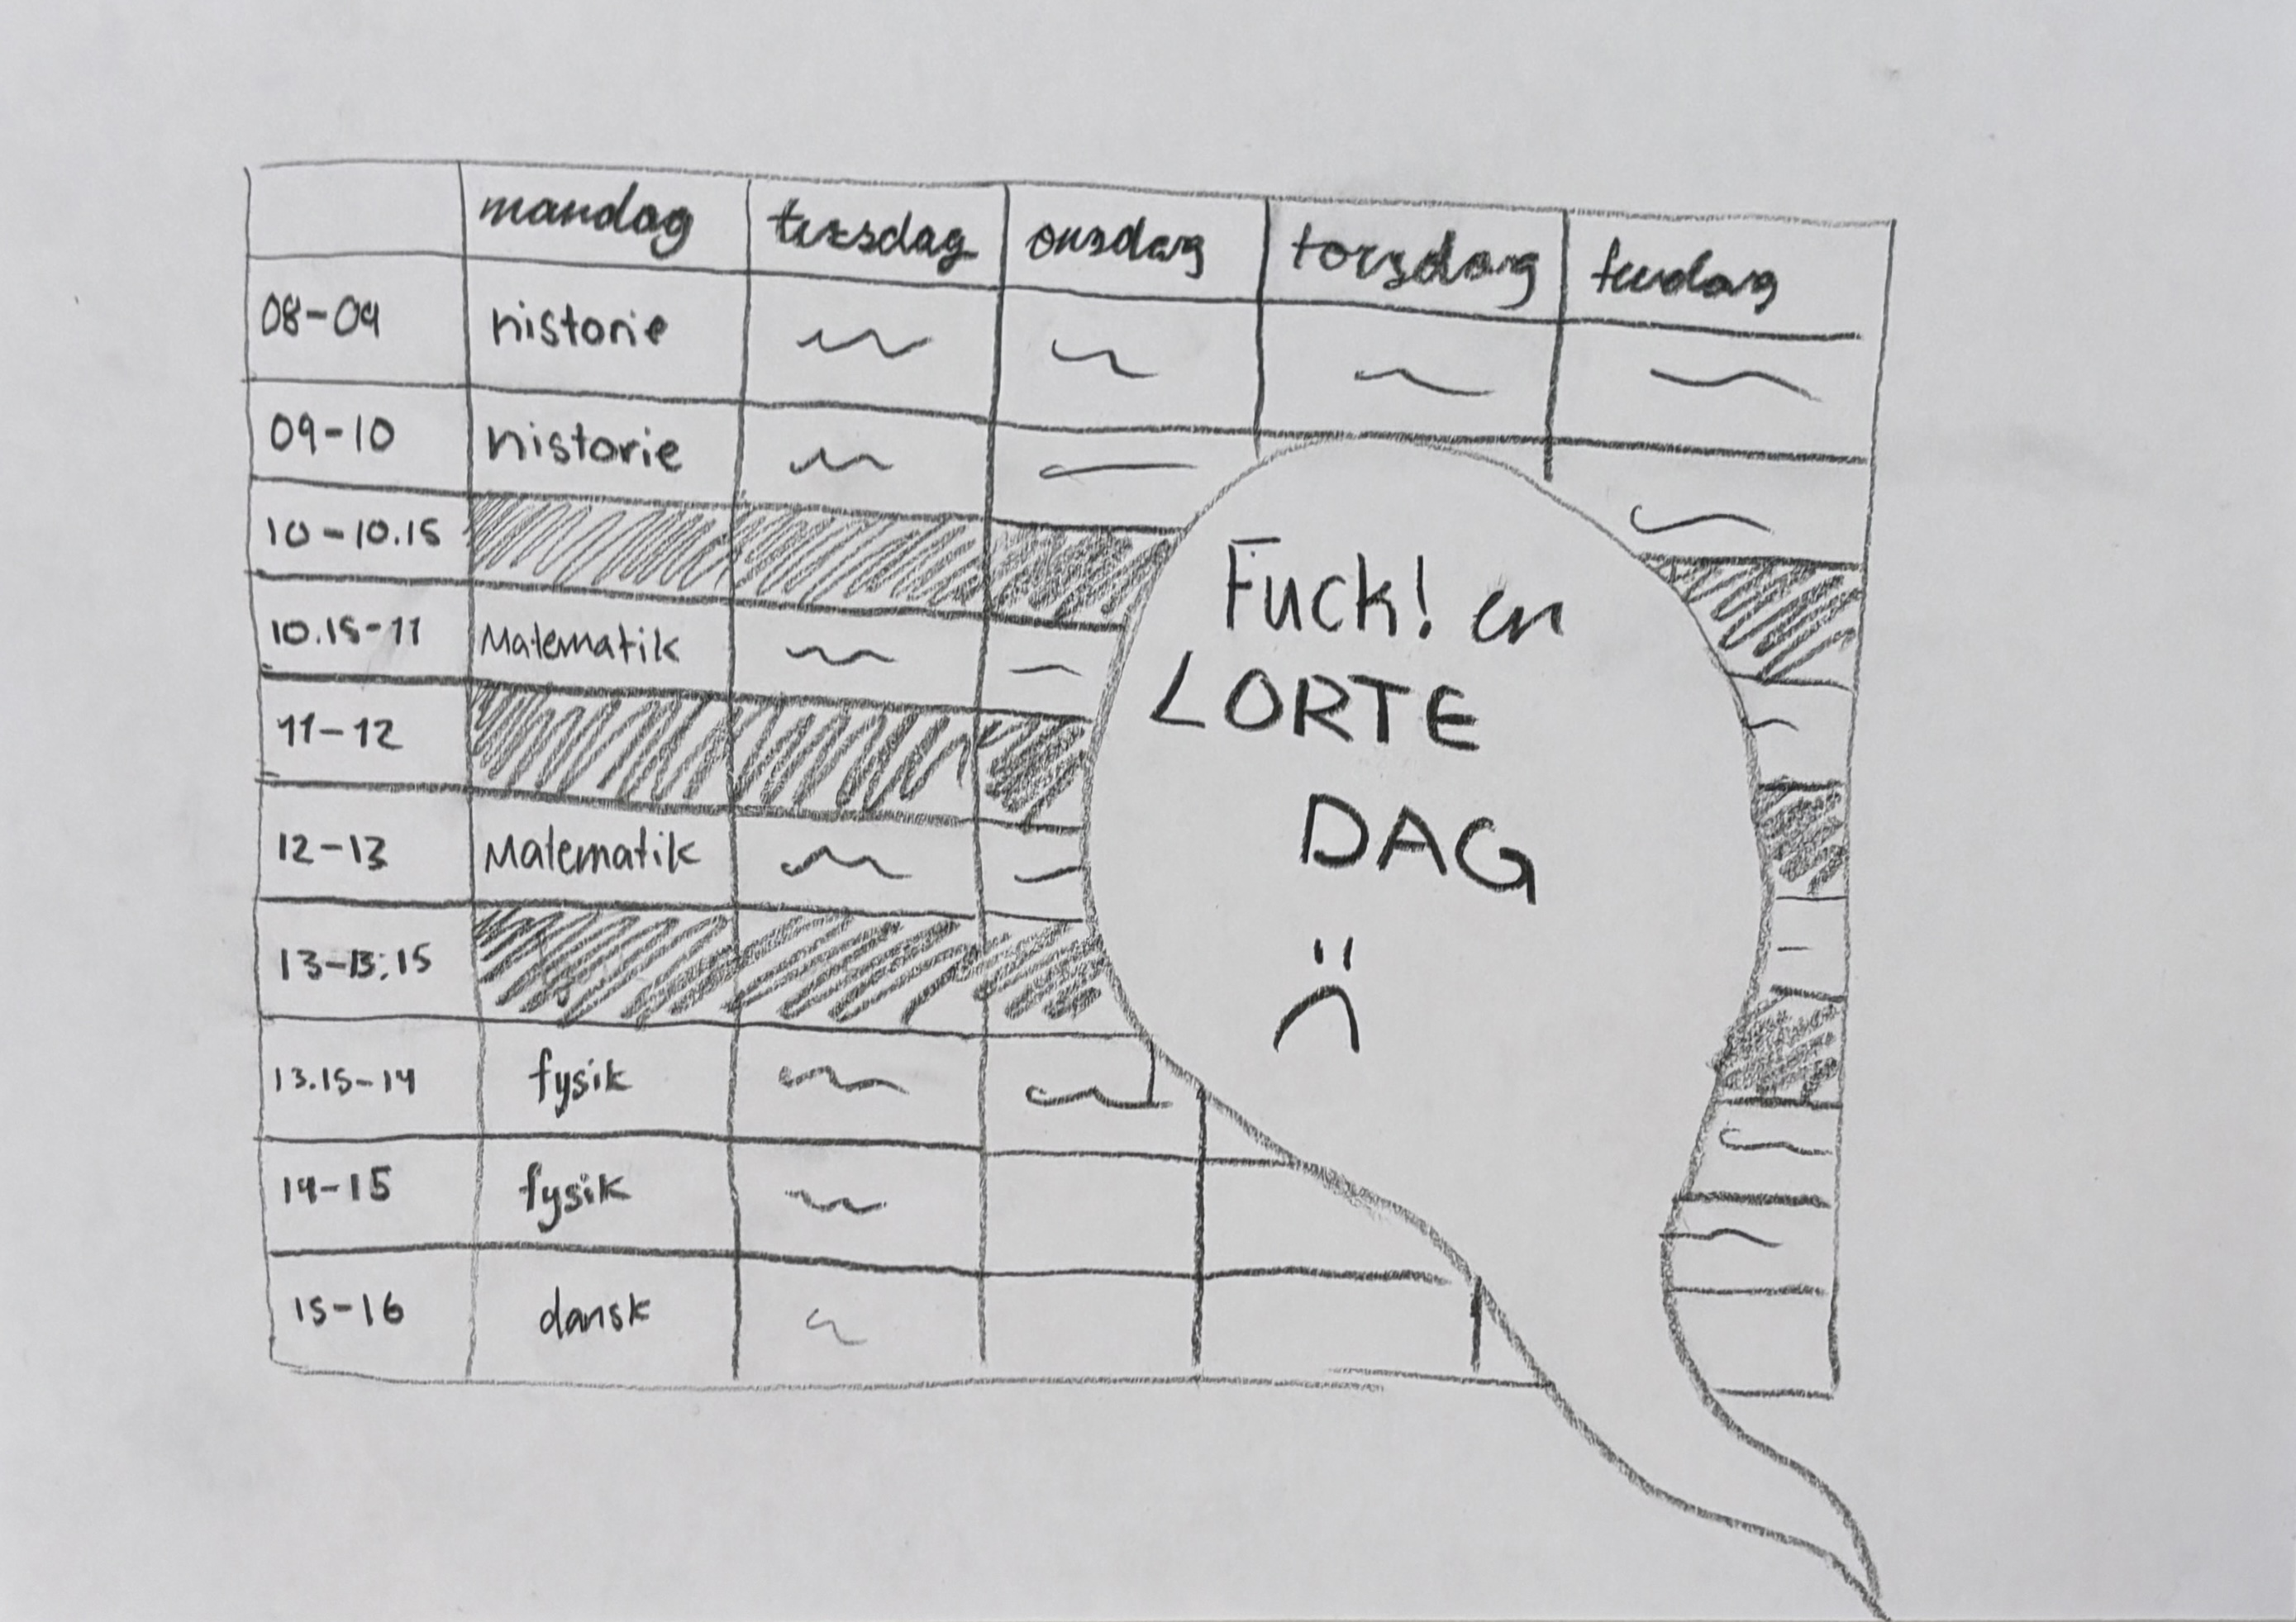 mandag tirsdag onsdag torsdag fredag
08-09 historie
09-10 historie
10-10.15
10.15-11 Matematik
11-12
12-13 Matematik
13-13:15
13.15-14 fysik
14-15 fysik
15-16 dansk
Fuck! en
LORTE
DAG